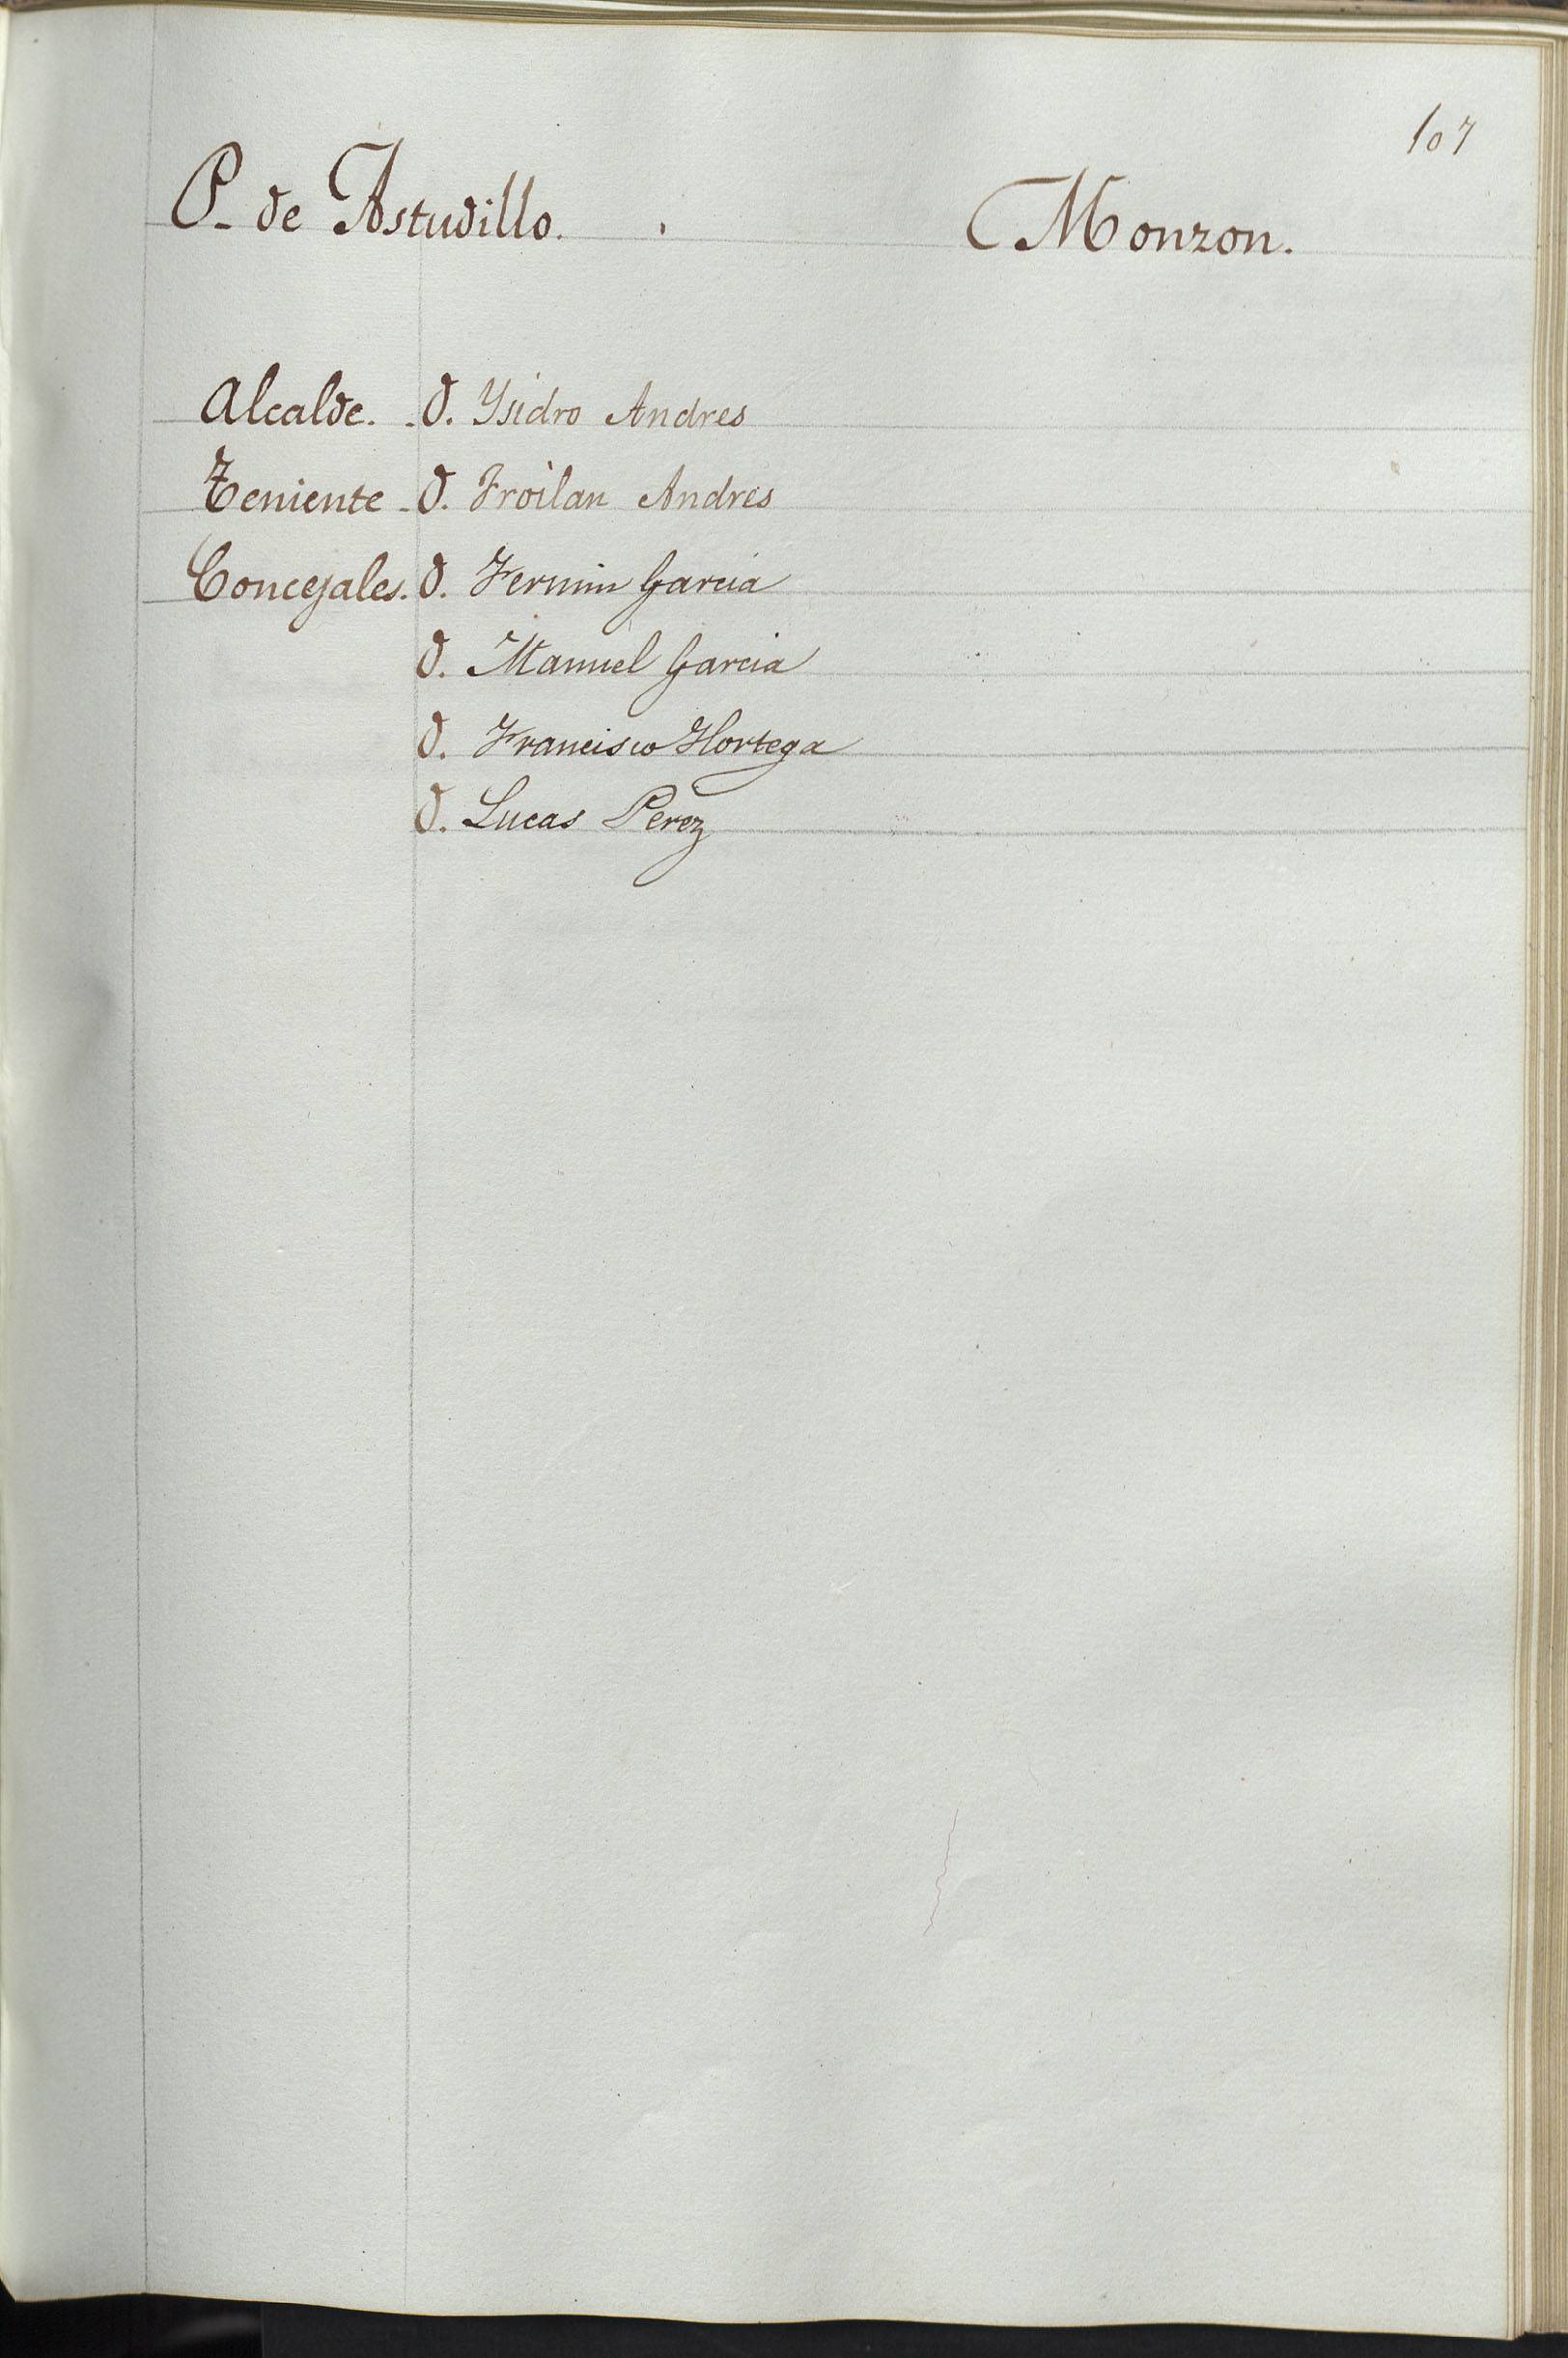 107
P. de Astudillo. Monzon.
Alcalde. - D. Ysidro Andres
Teniente - D. Froilan Andres
Concejales. D. Fermin Garcia
D. Manuel Garcia
D. Francisco Hortega
D. Lucas Perez